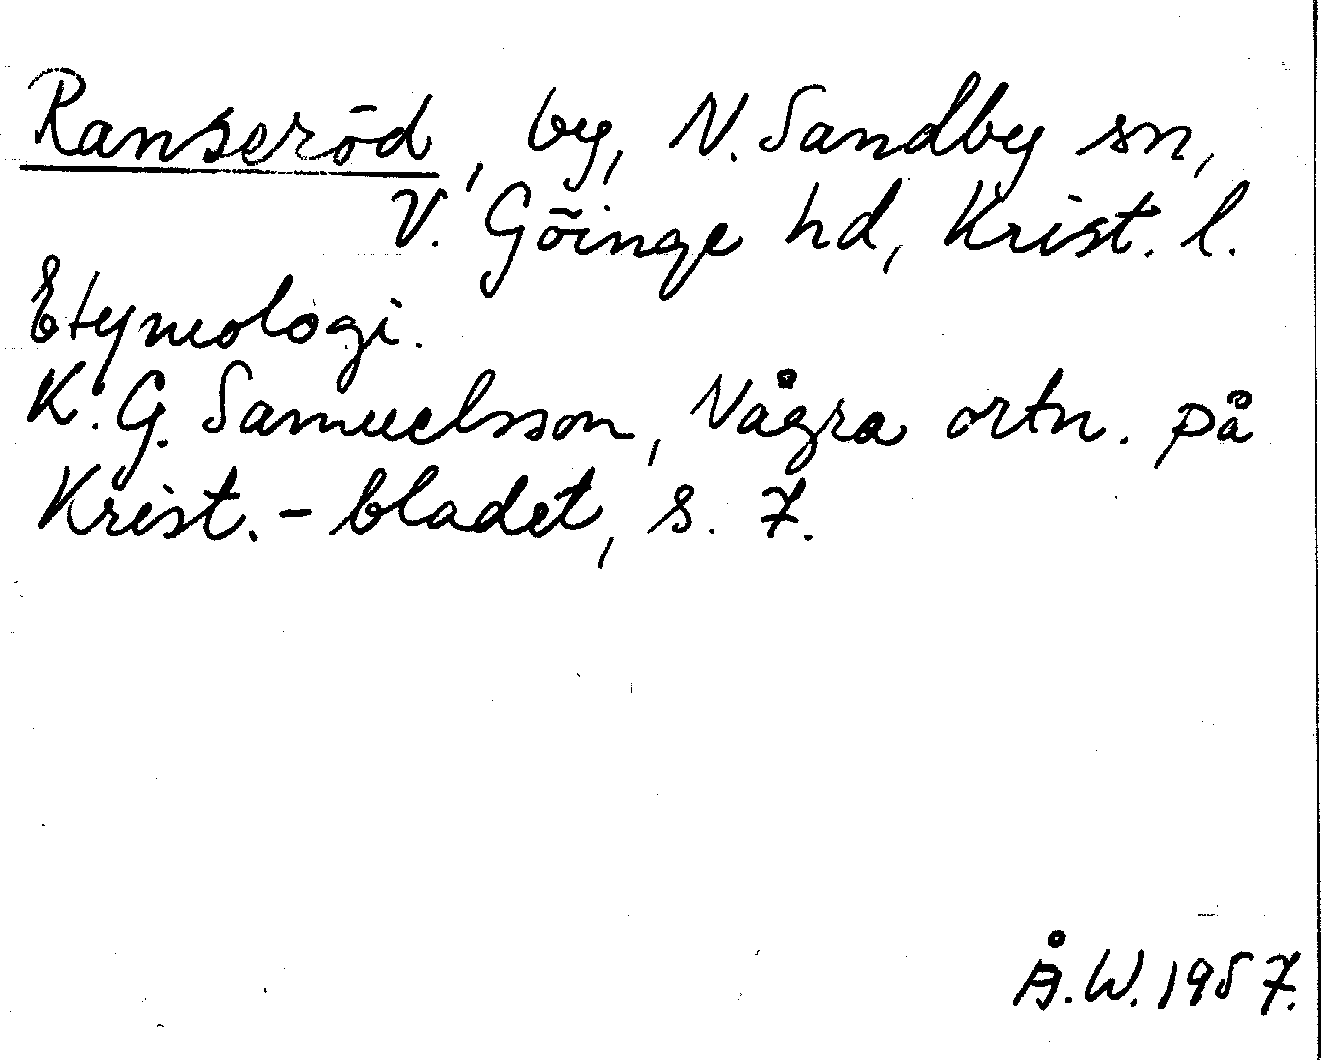 Ranseröd, by, N. Sandby sn,
V. Göinge hd, Krist. l.
Etymologi.
K. G. Samuelsson, Några ortn. på
Krist.-bladet, s. 7.
Å.W. 1957.